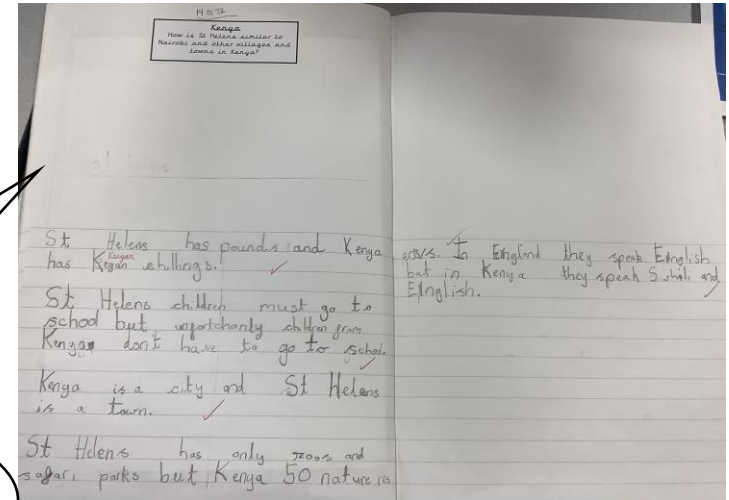 Kenya
How is St Helens similar to
Nairobi and other villages and
towns in Kenya?
St Helens has pounds and Kenya
has Kegan shillings.
Kenyan
St Helens children must go to
school but unfortchanly children from
Kenya don't have to go to school.
Kenya is a city and St Helens
is a town.
St Helens has only zoos and
safari parks but Kenya 50 nature res
In England they speak English
but in Kenya they speak Swhili and
English.